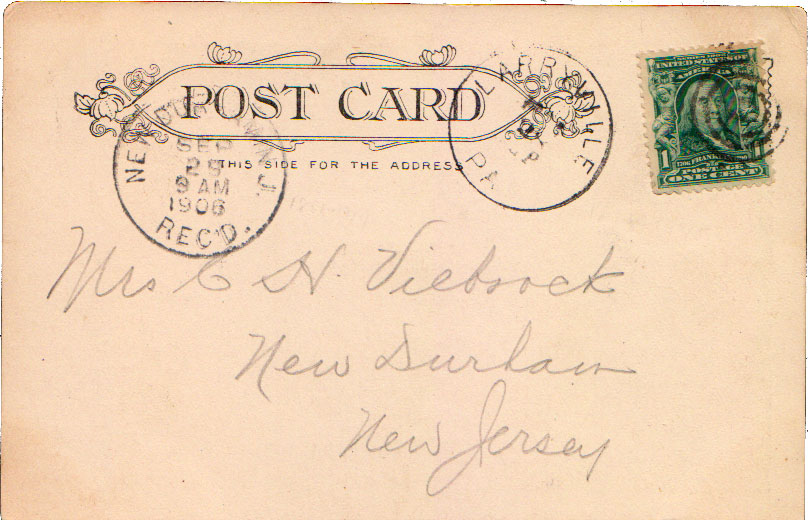 POST CARD
THIS SIDE FOR THE ADDRESS
NEW DURHAM N.J.
SEP
9 AM
1906
REC'D.
LARRYVILLE
PA
UNITED STATES OF
AMERICA
1 FRANKLIN 1
POSTAGE
ONE CENT
Mrs C H. Viebrock
New Durham
New Jersey